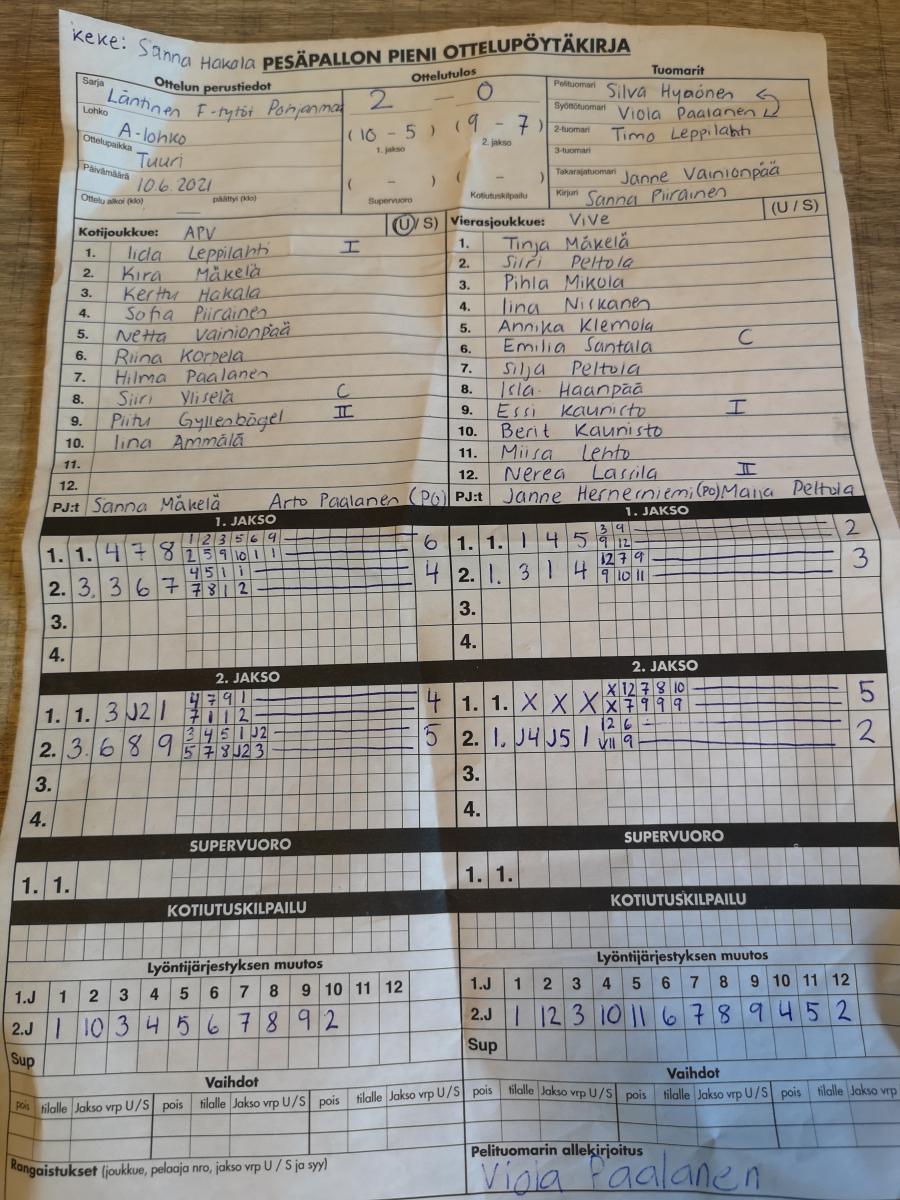 Keke: Sanna Hakala PESÄPALLON PIENI OTTELUPÖYTÄKIRJA
Ottelun perustiedot
Sarja Läntinen F-tytöt Pohjanmaa
Lohko A-lohko
Ottelupaikka Tuuri
Päivämäärä 10.6.2021
Ottelu alkoi (klo) — päättyi (klo)
Ottelutulos
2 — 0
(10 - 5) (9 - 7)
1. jakso 2. jakso
( - ) ( - )
Supervuoro Kotiutuskilpailu
Tuomarit
Pelituomari Silva Hyaönen
Syöttötuomari Viola Paalanen
2-tuomari Timo Leppilahti
3-tuomari
Takarajatuomari Janne Vainionpää
Kirjuri Sanna Piirainen
Kotijoukkue: APV (U/S)
1. Iida Leppilahti I
2. Kira Mäkelä
3. Kerttu Hakala
4. Sofia Piirainen
5. Netta Vainionpää
6. Riina Korpela
7. Hilma Paalanen
8. Siiri Yliselä C
9. Piitu Gyllenbögel II
10. Iina Ammälä
11.
12.
PJ:t Sanna Mäkelä Arto Paalanen (PO)
Vierasjoukkue: Vive (U / S)
1. Tinja Mäkelä
2. Siiri Peltola
3. Pihla Mikola
4. Iina Niskanen
5. Annika Klemola
6. Emilia Santala C
7. Silja Peltola
8. Isla Haanpää
9. Essi Kaunisto I
10. Berit Kaunisto
11. Miisa Lehto
12. Nerea Lassila II
PJ:t Janne Hernerniemi (PO) Maija Peltola
1. JAKSO
1. 1. 4 7 8 1 2 3 5 6 9 6
2 5 9 10 1 1
2. 3. 3 6 7 4 5 1 1 4
7 8 1 2
3.
4.
1. JAKSO
1. 1. 1 4 5 3 9 2
9 12
2. 1. 3 1 4 12 7 9 3
9 10 11
3.
4.
2. JAKSO
1. 1. 3 J2 1 4 7 9 1 4
7 1 1 2
2. 3. 6 8 9 3 4 5 1 J2 5
5 7 8 J2 3
3.
4.
2. JAKSO
1. 1. X X X X 12 7 8 10 5
X 7 9 9 9
2. 1. J4 J5 1 12 6 2
V11 9
3.
4.
SUPERVUORO
1. 1.
SUPERVUORO
1. 1.
KOTIUTUSKILPAILU
KOTIUTUSKILPAILU
Lyöntijärjestyksen muutos
1.J 1 2 3 4 5 6 7 8 9 10 11 12
2.J 1 10 3 4 5 6 7 8 9 2
Sup
Lyöntijärjestyksen muutos
1.J 1 2 3 4 5 6 7 8 9 10 11 12
2.J 1 12 3 10 11 6 7 8 9 4 5 2
Sup
Vaihdot
pois tilalle Jakso vrp U/S pois tilalle Jakso vrp U/S pois tilalle Jakso vrp U/S
Vaihdot
pois tilalle Jakso vrp U/S pois tilalle Jakso vrp U/S pois tilalle Jakso vrp
Rangaistukset (joukkue, pelaaja nro, jakso vrp U / S ja syy)
Pelituomarin allekirjoitus
Viola Paalanen